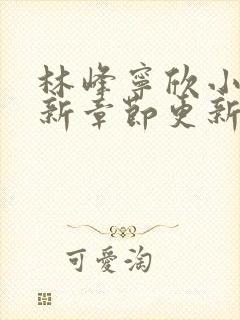 林峰寧欣小
新章節更新
可愛淘